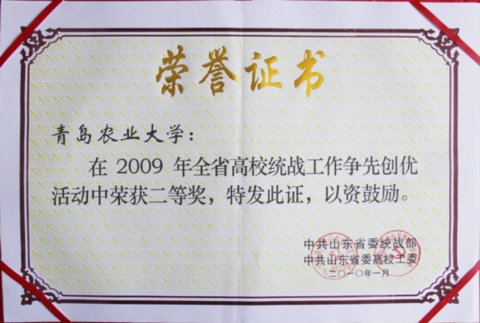 荣誉证书
青岛农业大学：
在 2009 年全省高校统战工作争先创优
活动中荣获二等奖，特发此证，以资鼓励。
中共山东省委统战部
中共山东省委高校工委
二〇一〇年一月